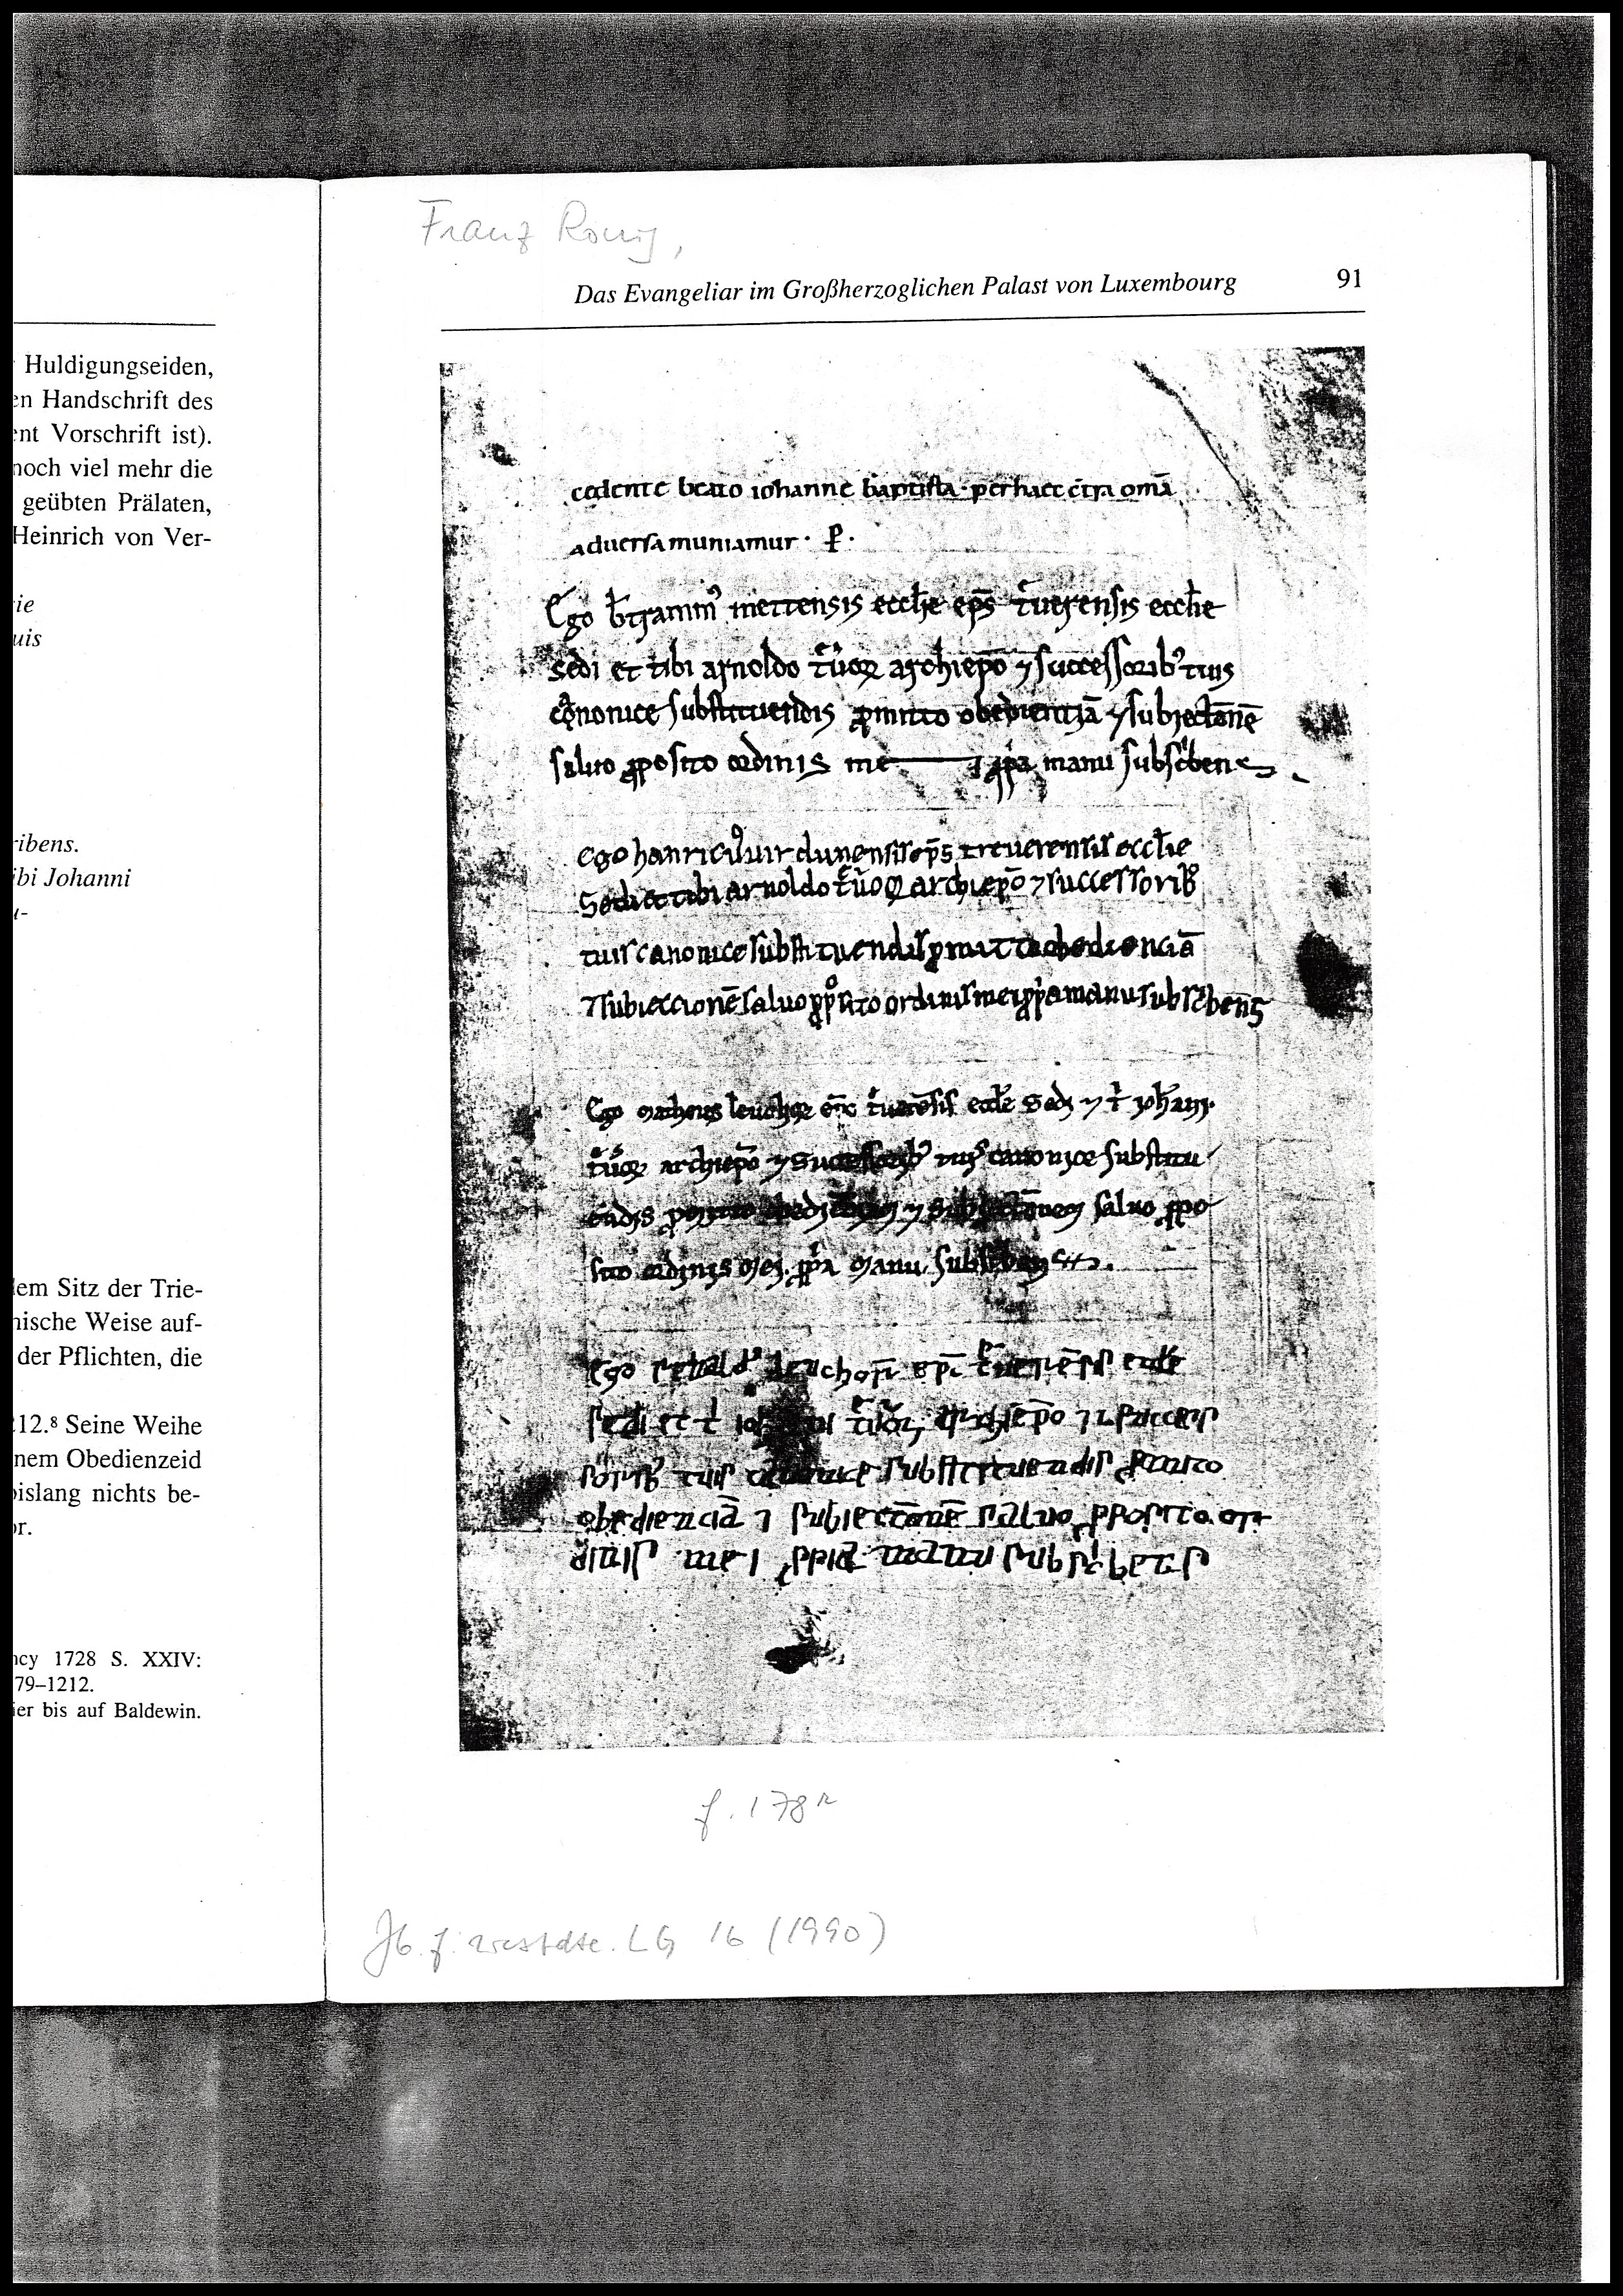 Huldigungseiden,
en Handschrift des
ent Vorschrift ist).
noch viel mehr die
geübten Prälaten,
Heinrich von Ver-
ie
uis
ribens.
ibi Johanni
u-
lem Sitz der Trie-
nische Weise auf-
der Pflichten, die
212.⁸ Seine Weihe
nem Obedienzeid
bislang nichts be-
or.
ncy 1728 S. XXIV:
79–1212.
ier bis auf Baldewin.
Franz Ronig,
Das Evangeliar im Großherzoglichen Palast von Luxembourg 91
cedente beato iohanne baptista · per haec c̄tra om̄a
adversa muniamur · P̄ ·
Ego b̄tramm᾽ mettensis eccl̄ie ep̄s t̄uerensis eccl̄ie
sedi et tibi arnoldo archiep̄o ⁊ successorib᾽ tuis
canonice substituendis ꝓmitto obedientiā ⁊ subiectōnē
saluo ꝓposito ordinis mei ꝓp̄a manu subsc̄bens
Ego hanric᾽ uirdunensis ep̄s treuerensis eccl̄ie
Sedi et tibi arnoldo archiep̄o ⁊ successorib᾽
tuis canonice substituendis ꝓmitto obedienciā
⁊ subieccionē saluo ordinis mei ꝓp̄a manu subsc̄bens
Ego t̄uerēsis eccl̄e sedi ⁊ t̄ ioh̄ani
archiep̄o ⁊ successorib᾽ tuis canonice substitu
ēdis ⁊ saluo ꝓpo
sito ordinis mei ꝓp̄a manu
Ego eccl̄e
sedi et t̄ archiep̄o ⁊ succes
sorib᾽ tuis canonice substituendis ꝓmitto
obedienciā ⁊ subiectōnē saluo ꝓposito or
dinis mei ꝓpia manu subsc̄bens
f. 178ʳ
Jb. f. westdte. LG 16 (1990)